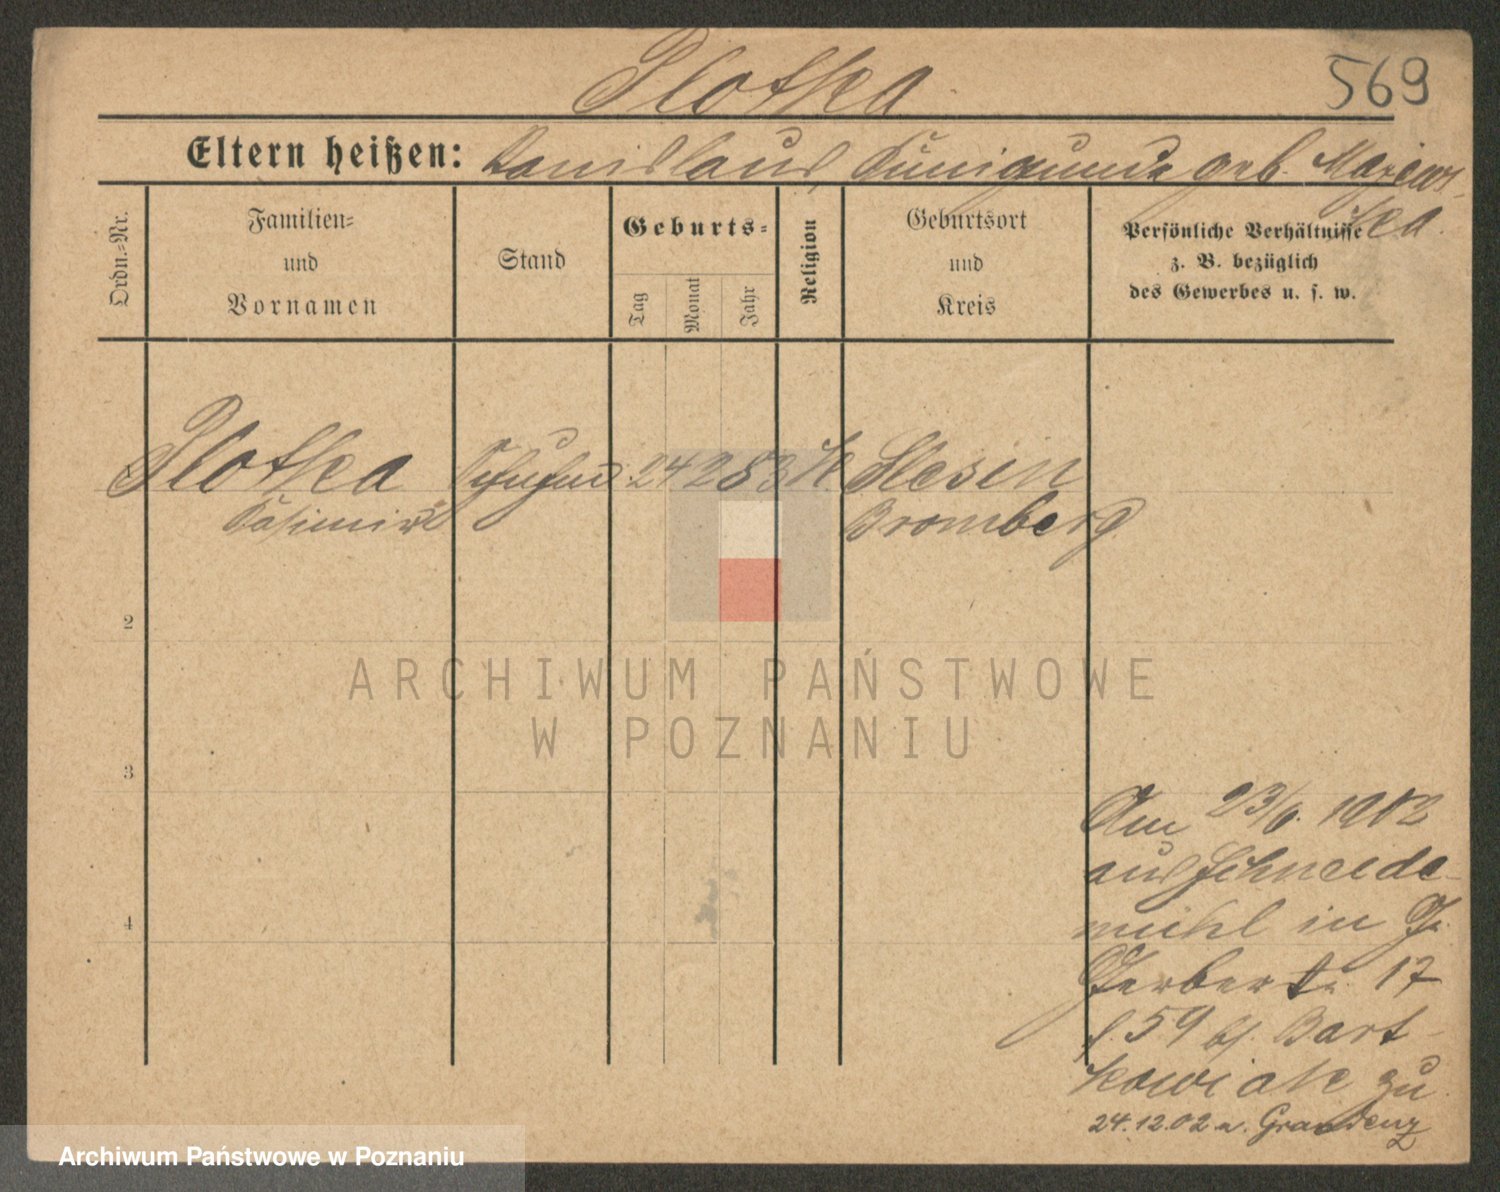 Plotka
569
Eltern heißen: Stanislaus, Kunigunde geb. Majews-
ka.
Ordn.-Nr.
Familien-
und
Vornamen
Stand
Geburts-
Tag
Monat
Jahr
Religion
Geburtsort
und
Kreis
Persönliche Verhältnisse
z. B. bezüglich
des Gewerbes u. s. w.
Plotka 24 2 83 K. Slesin
Kasimir Bromberg
2
3
4
Am 23/6. 1902
aus Schneide-
mühl in
Gerberstr. 17
59 bj. Bart-
kowiak zu
24.12.02 n. Graudenz
ARCHIWUM PAŃSTWOWE
W POZNANIU
Archiwum Państwowe w Poznaniu